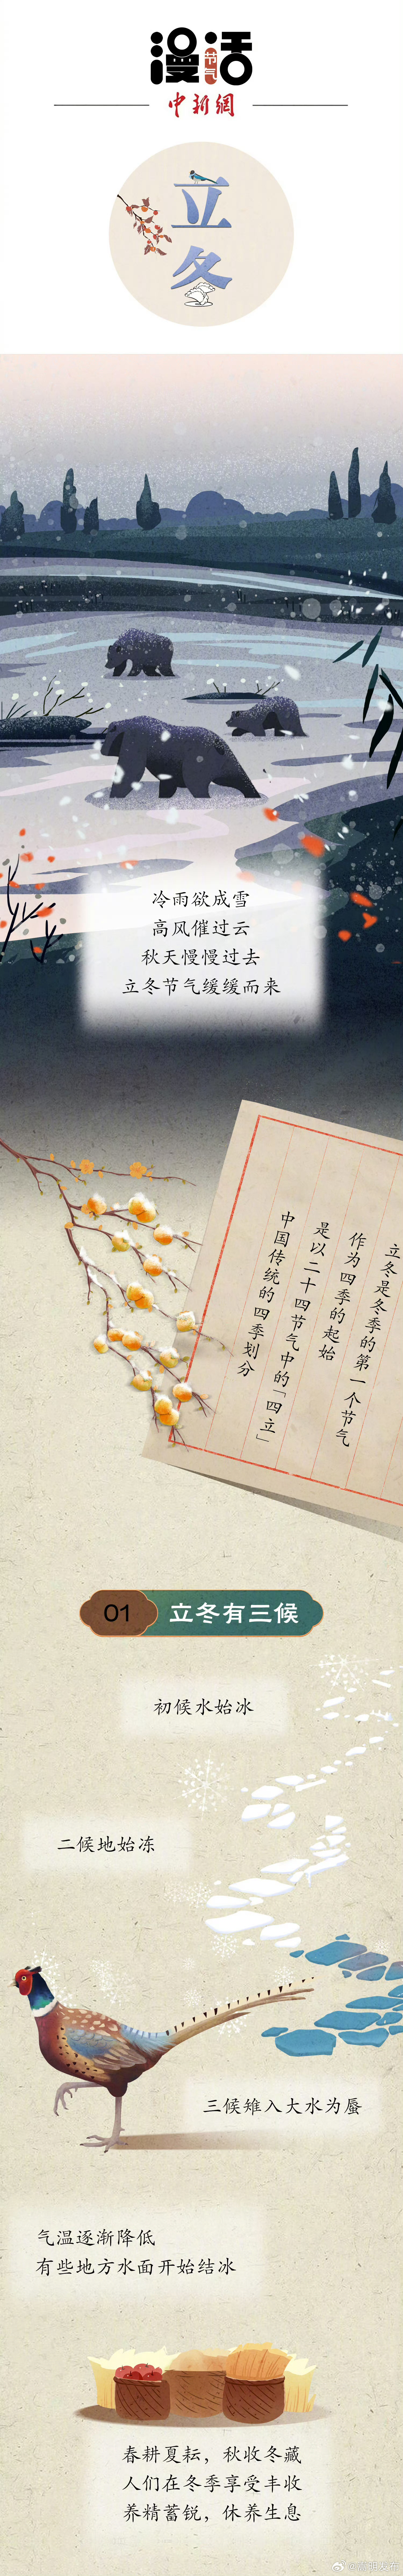 漫话
节气
中新網
立
冬
冷雨欲成雪
高风催过云
秋天慢慢过去
立冬节气缓缓而来
立冬是冬季的第一个节气
作为四季的起始
是以二十四节气中的「四立」
中国传统的四季划分
01 立冬有三候
初候水始冰
二候地始冻
三候雉入大水为蜃
气温逐渐降低
有些地方水面开始结冰
春耕夏耘，秋收冬藏
人们在冬季享受丰收
养精蓄锐，休养生息